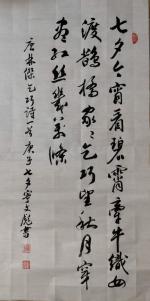 七夕今宵看碧霄牽牛織女
渡鵲橋家々乞巧望秋月穿
盡紅絲幾萬條
唐林傑乞巧詩一首庚子七夕寧文彪書